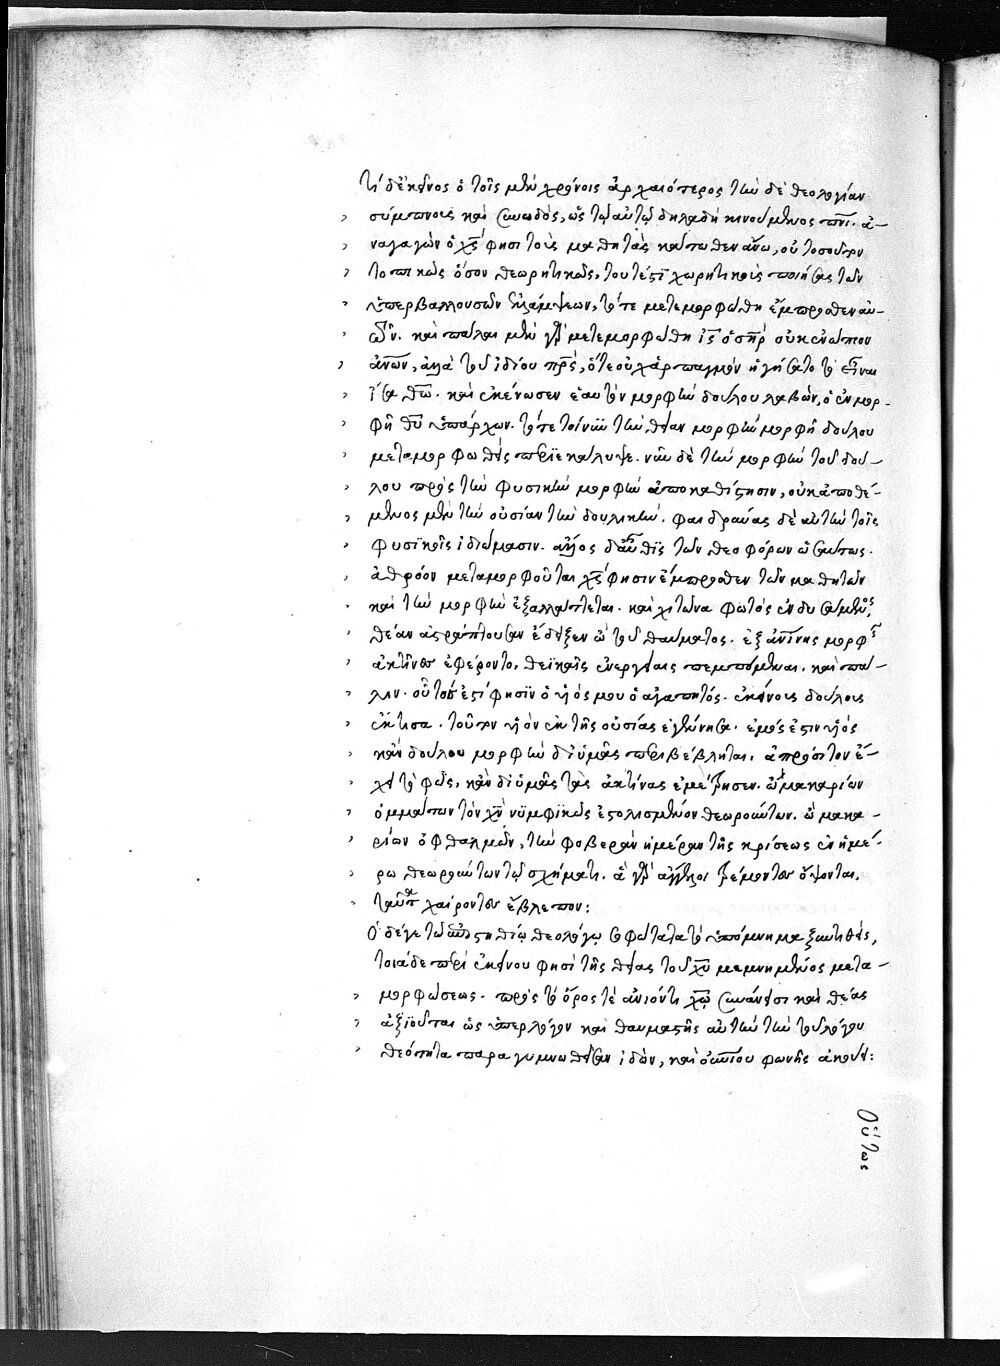 τί δἐκεῖνος ὁ τοῖς μὲν χρόνοις ἀρχαιότερος τὴν δὲ θεολογίαν
σύμπνους καὶ συνωδὸς, ὡς τῷ αὐτῷ δηλαδὴ κινούμενος πνι. ἀ-
ναγαγὼν ὁ χς φησὶ τοὺς μαθητὰς κάτωθεν ἄνω, οὐ τοσοῦτον
τοπικῶς ὅσον θεωρητικῶς, τουτέστι χωρητικοὺς ποιήσας τῶν
ὑπερβαλλουσῶν ἐλλάμψεων, τότε μετεμορφώθη ἔμπροσθεν αὐ-
τῶν. καὶ πάλαι μὲν γὰρ μετεμορφώθη ις ὁ σηρ οὐκ ἐνώπιον
ανων, ἀλλὰ τοῦ ἰδίου πρς, ὅτε οὐχ ἁρπαγμὸν ἡγήσατο τὸ εἶναι
ἴσα θω. καὶ ἐκένωσεν ἑαυτὸν μορφὴν δούλου λαβὼν, ὁ ἐν μορ-
φῆ θυ ὑπάρχων. τότε τοίνυν τὴν θείαν μορφὴν μορφῆ δούλου
μεταμορφωθεὶς περιεκάλυψε. νῦν δὲ τὴν μορφὴν τοῦ δού-
λου πρὸς τὴν φυσικὴν μορφὴν ἀποκαθίστησιν, οὐκ ἀποθέ-
μενος μὲν τὴν οὐσίαν τὴν δουλικὴν. φαιδρύνας δὲ αὐτὴν τοῖς
φυσικοῖς ἰδιώμασιν. ἄλλος δαῦθις τῶν θεοφόρων ὡσαύτως.
ἀθρόον μεταμορφοῦται χς φησιν ἔμπροσθεν τῶν μαθητῶν
καὶ τὴν μορφὴν ἐξαλλάττεται. καὶ χιτῶνα φωτὸς ἐνδυσάμενος,
θέαν ἀστράπτουσαν ἔδειξεν ὢ τοῦ θαύματος. ἐξ ἀνίνης μορφῆς
ἀκτῖνες ἐφέροντο, θεϊκαῖς ἐνεργείαις πεμπόμεναι. καὶ πά-
λιν. οὗτός ἐστί φησϊν ὁ υἱός μου ὁ ἀγαπητός. ἐκείνους δούλους
ἔκτισα. τοῦτον υἱὸν ἐκ τῆς οὐσίας ἐγέννησα. ἐμός ἐστιν υἱὸς
κἂν δούλου μορφὴν διὑμᾶς περιβέβληται. ἀπρόσιτον ἔ-
χει τὸ φῶς, κἂν διὑμᾶς τὰς ἀκτίνας ἐμέτρησεν. ὢ μακαρίων
ὀμμάτων τὸν χν νυμφικῶς ἐστολισμένον θεωρούντων. ὢ μακα-
ρίων ὀφθαλμῶν, τὴν φοβερὰν ἡμέραν τῆς κρίσεως ἐν ἡμέ-
ρω θεωρούντων τῷ σχήματι. ἃ γὰρ ἄγγελοι τρέμοντες ὄψονται,
ταῦτα χαίροντες ἔβλεπον:
Ὁ δέγε τῶ αὐτῶ θείῳ θεολόγῳ σοφώτατα τὸ ὑπόμνημα ξυντιθεὶς,
τοιάδε περὶ ἐκείνου φησὶ τῆς θείας τοῦ χυ μεμνημένος μετα-
μορφώσεως. πρὸς τὸ ὄρος τὲ ἀνιόντι χω συνάνεισι καὶ θέας
ἀξιοῦται ὡς ὑπερλόγου καὶ θαυμαστῆς αὐτὴν τὴν τοῦ λόγου
θεότητα παραγυμνωθεῖσαν ἰδὼν, καὶ οὐνίου φωνῆς ἀκούει:
Οὕτως